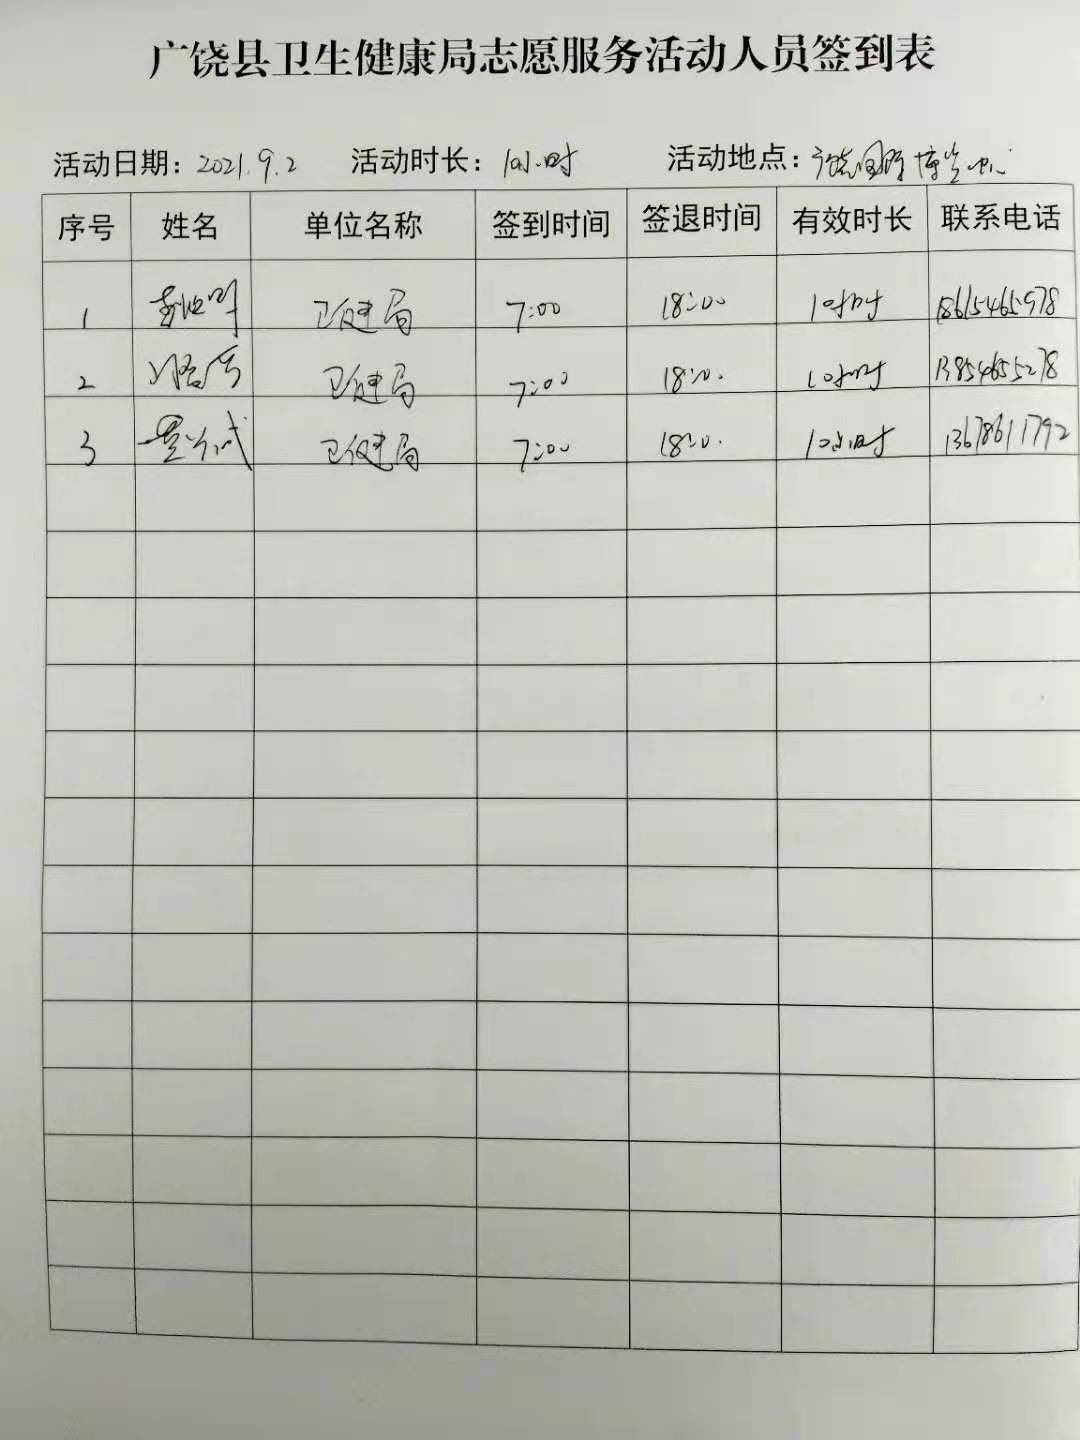 广饶县卫生健康局志愿服务活动人员签到表
活动日期：2021.9.2 活动时长：10小时 活动地点：广饶国际博览中心
序号 姓名 单位名称 签到时间 签退时间 有效时长 联系电话
1 卫健局 7:00 18:00 10小时 18615465978
2 卫健局 7:00 18:00 10小时 13854655278
3 卫健局 7:00 18:00 10小时 13678611792